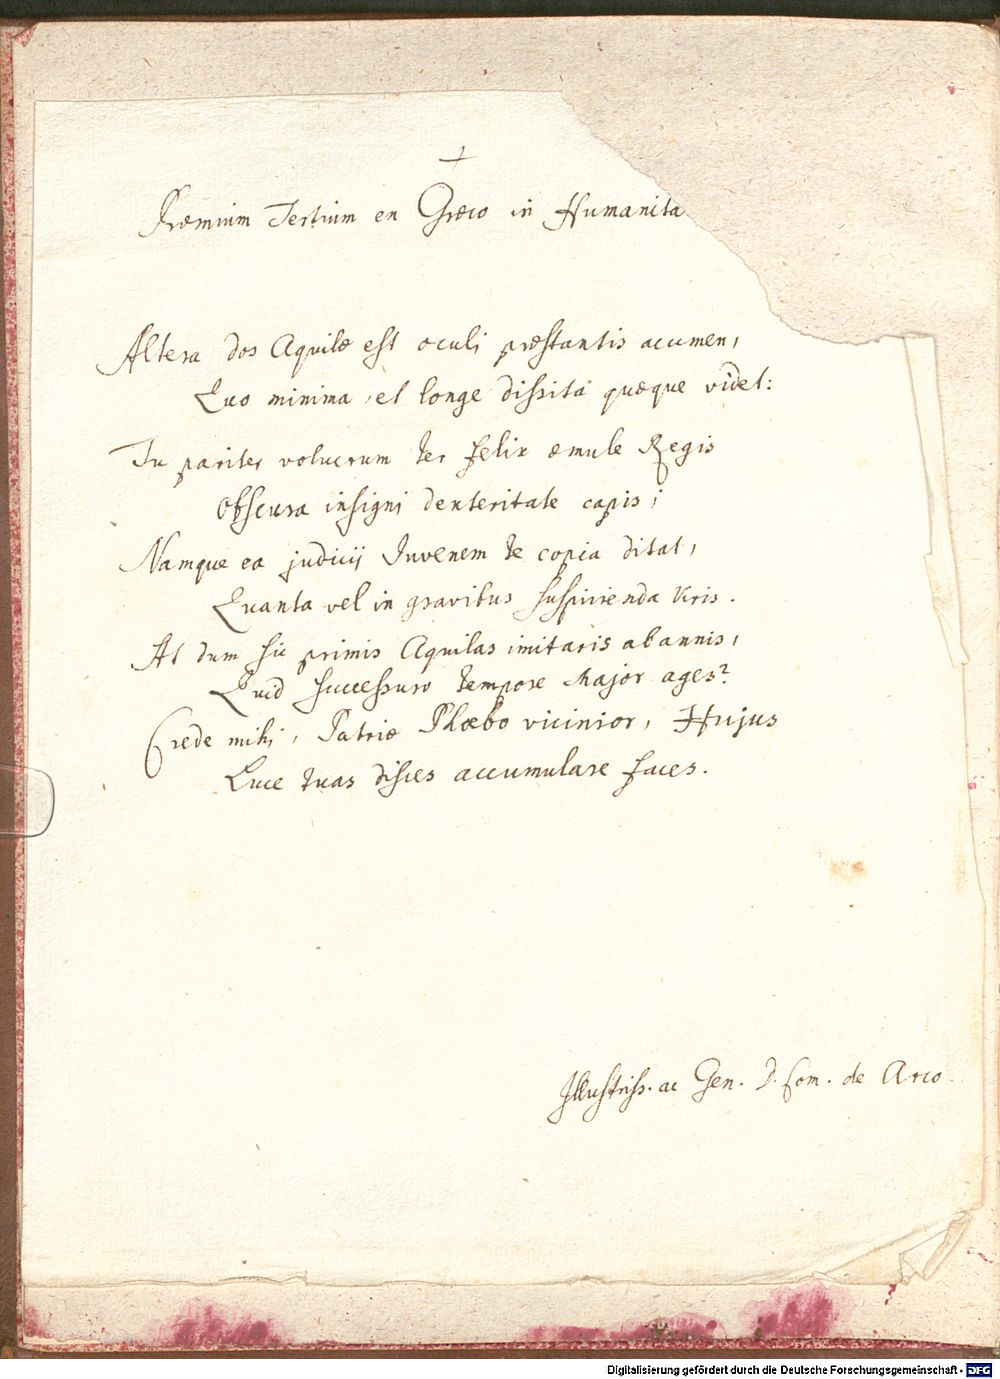 Præmium Tertium en Græco in Humanita
Altera dos Aquilæ est oculi præstantis acumen,
Quo minima, et longe dissita quæque videt:
Tu pariter volucrum ter felix æmule Regis
Obscura insigni dexteritate capis;
Namque ea judicij Juvenem te copia ditat,
Quanta vel in gravibus suspicienda Viris.
At dum sic primis Aquilas imitaris ab annis,
Quid successuro tempore Major ages?
Crede mihi, Patrio Phœbo vicinior, Hujus
Luce tuas disces accumulare faces.
Illustriss. ac Gen. D. Com. de Arco.
Digitalisierung gefördert durch die Deutsche Forschungsgemeinschaft - DFG